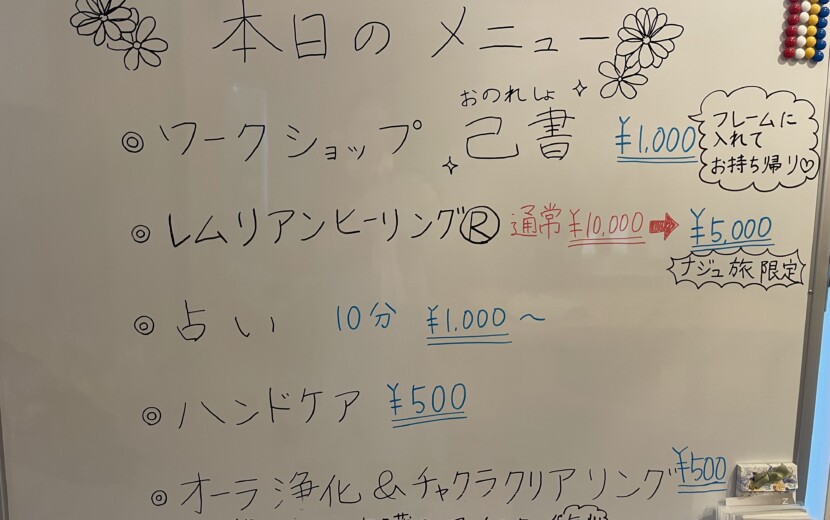 本日のメニュー
おのれしょ
◎ ワークショップ 己書 ¥1,000
フレームに
入れて
お持ち帰り♡
◎ レムリアンヒーリング® 通常 ¥10,000 ➡ ¥5,000
ナジュ旅限定
◎ 占い 10分 ¥1,000～
◎ ハンドケア ¥500
◎ オーラ浄化&チャクラクリアリング ¥500